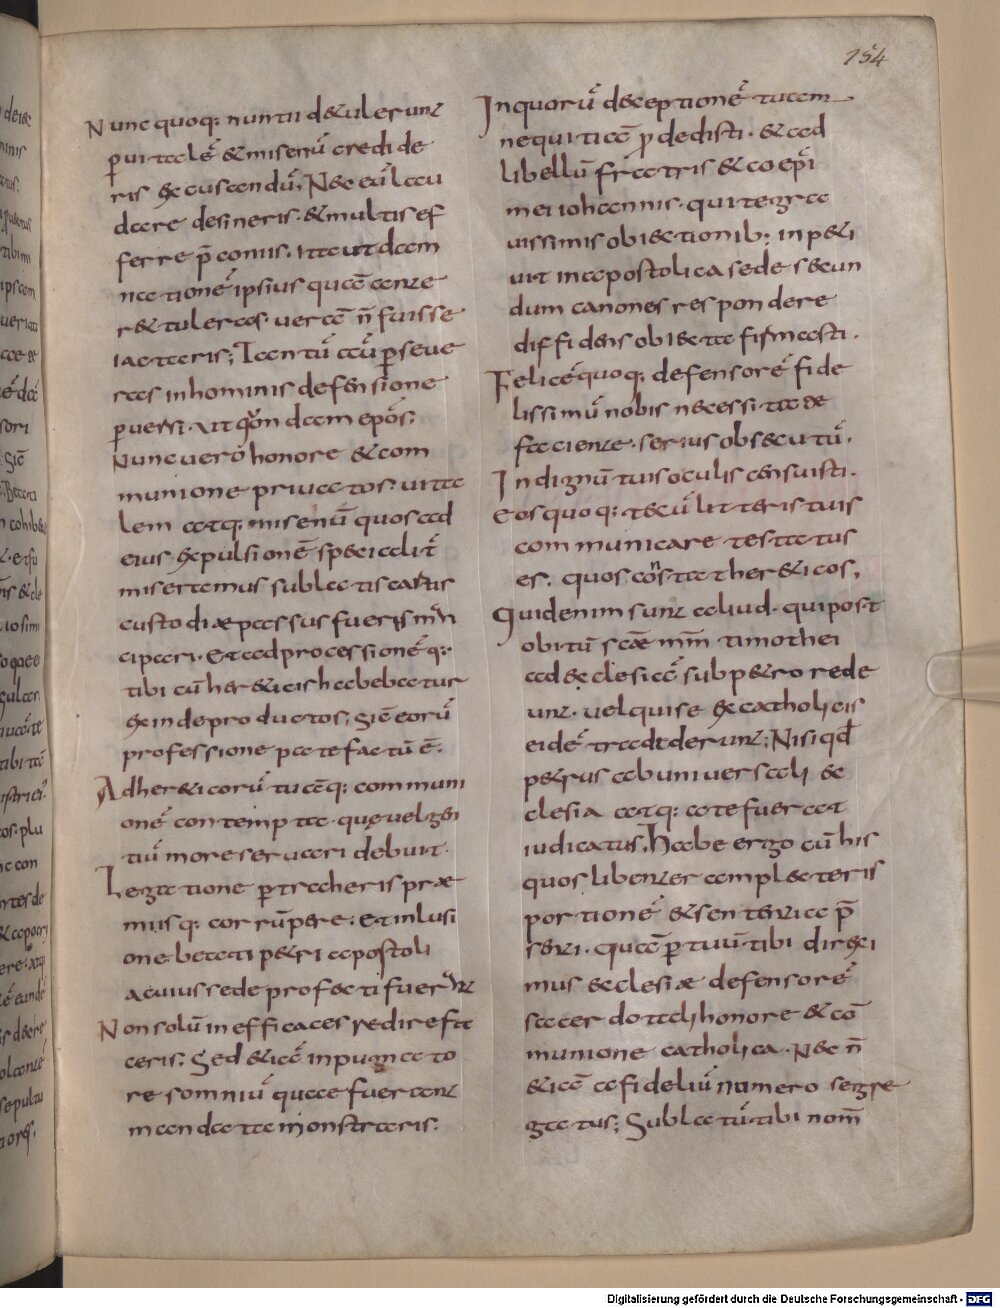 154
Nunc quoq; nuntii detulerunt
p uitalē & misenū credide
ris excusandū; Nec eū lau
dare desineris. & multis ef
ferre p̄coniis. ita ut dam
nationē ipsius quā ante
retuleras. uerā ñ fuisse
iactaris; Tantū aū perseue
ras in hominis defensione
puersi. ut qđ non dam epōs;
Nunc uero honore & com
munione priuatos. uita
lem atq; misenū quos ad
eius expulsionē speciali t̄
miseramus sublatis cartis
custodiæ passus fueris mñ
cipari. et ad processionē q;
tibi cū hereticis habebatur
exinde productos; sic eorū
professione patefactū ē.
Ad hereticorū tuāq; communi
onē contempta. quę uel gen
tiū more seruari debuit.
Legatione ptracheris præ
miisq; corrūpere. et inlusi
one beati petri apostoli
a cuius sede profecti fuerant
Non solū inefficaces redire fa
ceris. Sed etiā inpugnato
re somniū quae fuerant
mandata monstraris.
In quorū deceptionē tuam
nequitiā p dedisti. & ad
libellū fratris & coepī
mei iohannis. qui te gra
uissimis obiectionib; inpeti
uit in apostolica sede secun
dum canones respondere
diffidens obiecta firmasti.
Felicē quoq; defensorē fide
lissimū nobis necessitate
faciente. serius obsecutū.
Indignū tuis oculis censuisti.
Eos quoq; tecū litteris tuis
communicare testatus
es. quos cōstat hereticos.
Quid enim sunt aliud. qui post
obitū scæ mm̄ timothei
ad eclesiā sub petro rede
unt. uel qui se ex catholicis
eidē tradiderunt; Nisi qđ
petrus ab uniuersali e
clesia atq; a te fuerat
iudicatus; Habe ergo cū his
quos libenter amplecteris
portionē & sententia p̄
senti. quā p tuū tibi direxi
mus eclesiæ defensorē
sacerdotali honore & cō
munione catholica. Nec ñ
etiā a fideliū numero segre
gatus; Sublatū tibi nom̄
Digitalisierung gefördert durch die Deutsche Forschungsgemeinschaft - DFG